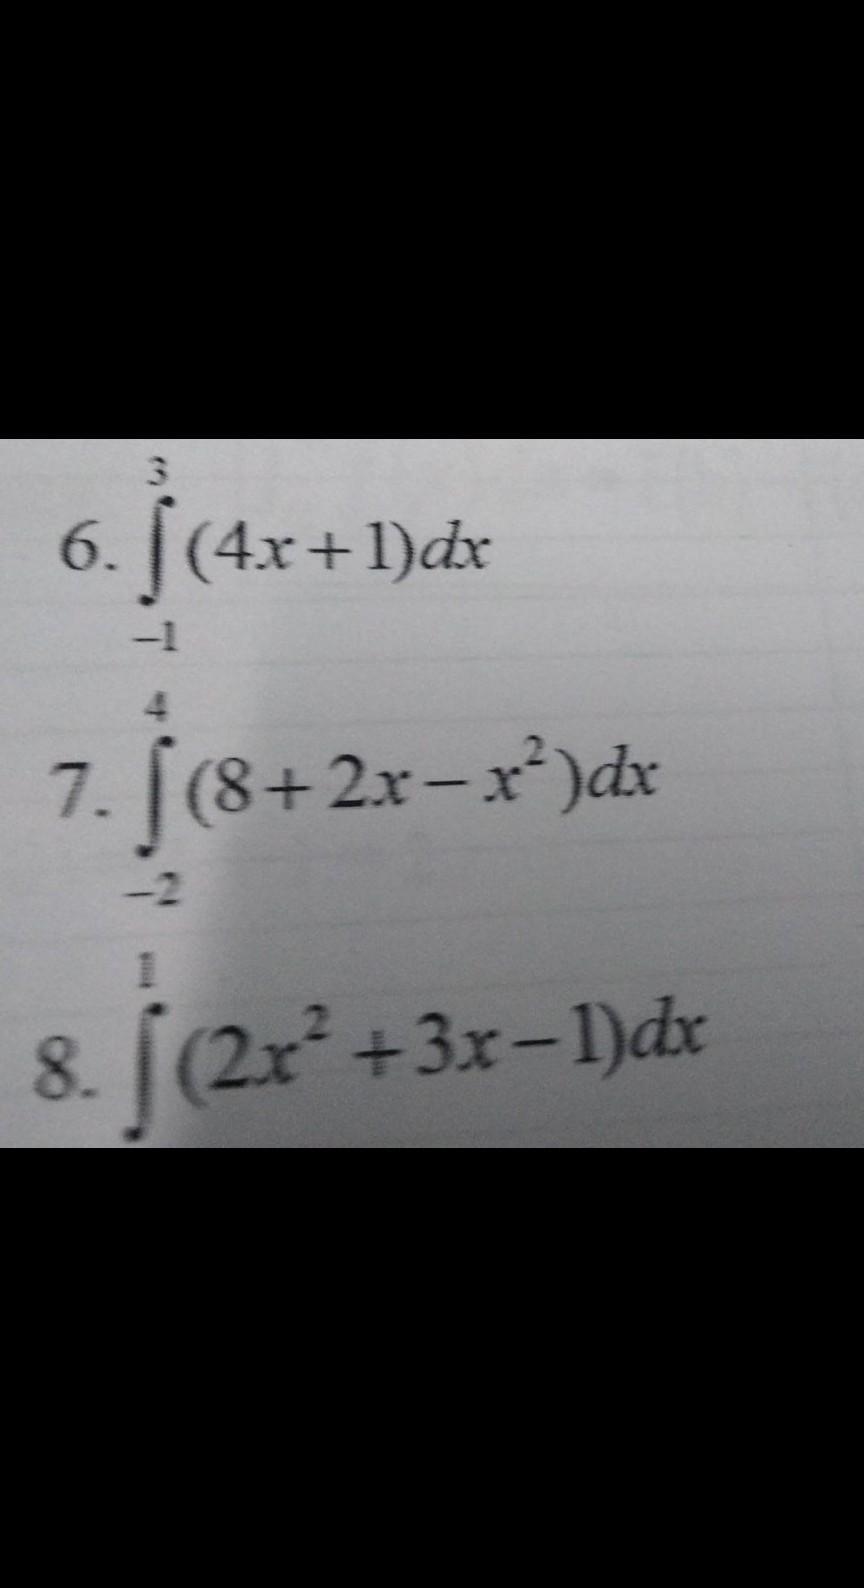 6. ∫₋₁³ (4x+1)dx
7. ∫₋₂⁴ (8+2x−x²)dx
8. ∫¹ (2x²+3x−1)dx